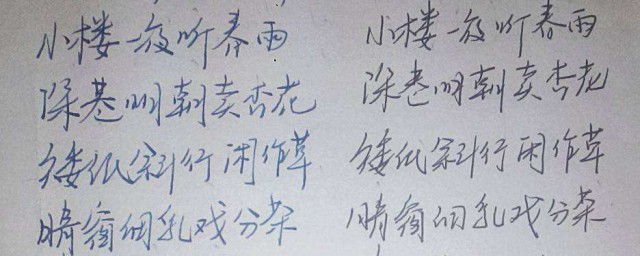 小楼一夜听春雨 小楼一夜听春雨
深巷明朝卖杏花 深巷明朝卖杏花
矮纸斜行闲作草 矮纸斜行闲作草
晴窗细乳戏分茶 晴窗细乳戏分茶